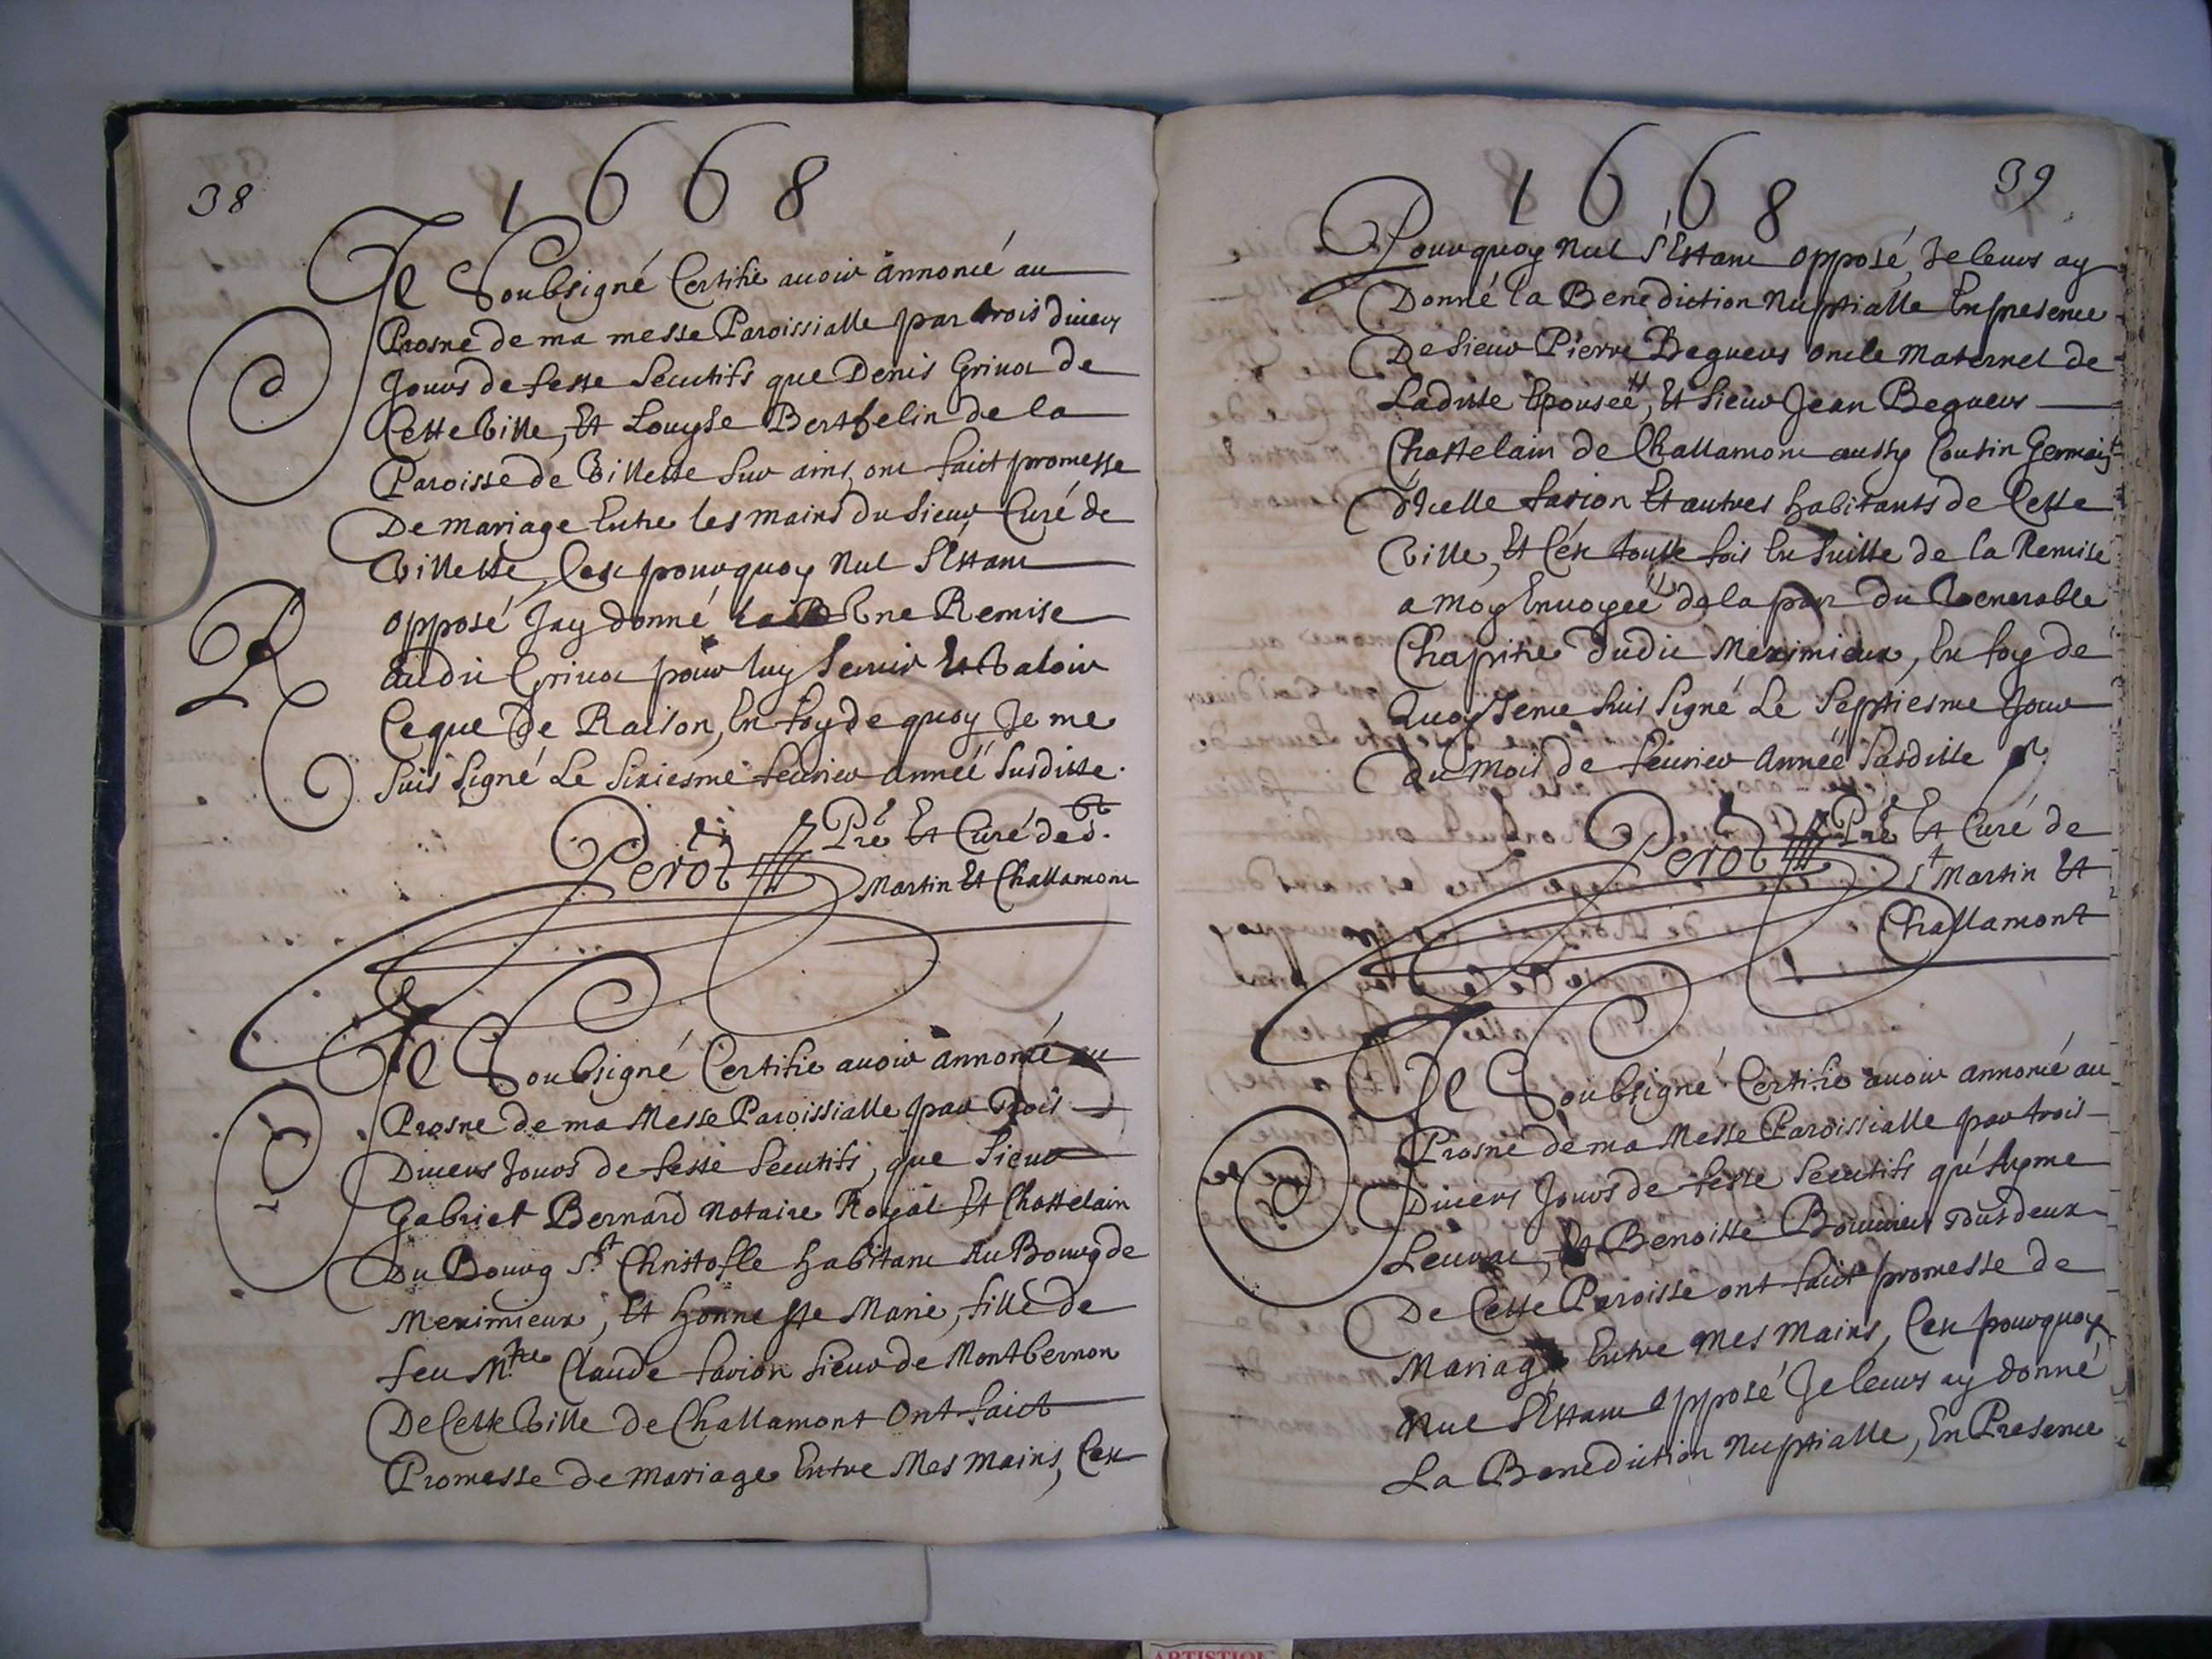 38
1668
Je Soubsigné Certifie auoir annoncé au
Prosne de ma messe Paroissialle par trois diuers
Jours de feste Secutifs que Denis Griuot de
Cette Ville, Et Louyse Berthelin de la
Paroisse de Villette Sur ains, ont faict promesse
De mariage Entre les mains du Sieur Curé de
Villette, Cest pourquoy Nul S'Estant
opposé Jay donné Vne Remise
Audit Griuot pour luy Seruir Et Valoir
Ce que de Raison, En foy de quoy Je me
Suis Signé Le Sixiesme feurier année Susditte.
Perot Pre Et Curé de St.
Martin Et Challamont
Je Soubsigné Certifie auoir annoncé au
Prosne de ma Messe Paroissialle par Trois
Diuers Jours de feste Secutifs, que Sieur
Gabriel Bernard Notaire Royal Et Chattelain
Du Bourg St. Christofle habitant Au Bourg de
Meximieux, Et honneste Marie, fille de
feu Mtre Claude fauion Sieur de Montbernon
De Cette Ville de Challamont Ont faict
Promesse de Mariage Entre Mes mains, Cest
39
1668
Pourquoy Nul S'Estant opposé, Je leurs ay
Donné la Benediction Nuptialle En presence
De Sieur Pierre Begueus Oncle Maternel de
Laditte Epousée, Et Sieur Jean Begueus
Chattelain de Challamont aussy Cousin Germain
d'Icelle fauion Et autres habitants de Cette
Ville, Et Cest toutte fois En Suitte de la Remise
a moy Enuoyée de la part du Venerable
Chapitre dudit Meximieux, En foy de
Quoy Je me Suis Signé Le Septiesme Jour
du Mois de feurier Année Susditte
Perot Pre Et Curé de
St Martin Et
Challamont
Je Soubsigné Certifie auoir annoncé au
Prosne de ma Messe Paroissialle par trois
Diuers Jours de feste Secutifs qu'Ayme
Leurat, Et Benoitte Bouuier Tous deux
De Cette Paroisse ont faict promesse de
Mariage Entre Mes Mains, Cest pourquoy
Nul S'Estant opposé Je leurs ay donné
La Benediction Nuptialle, En Presence
ARTISTIQUE